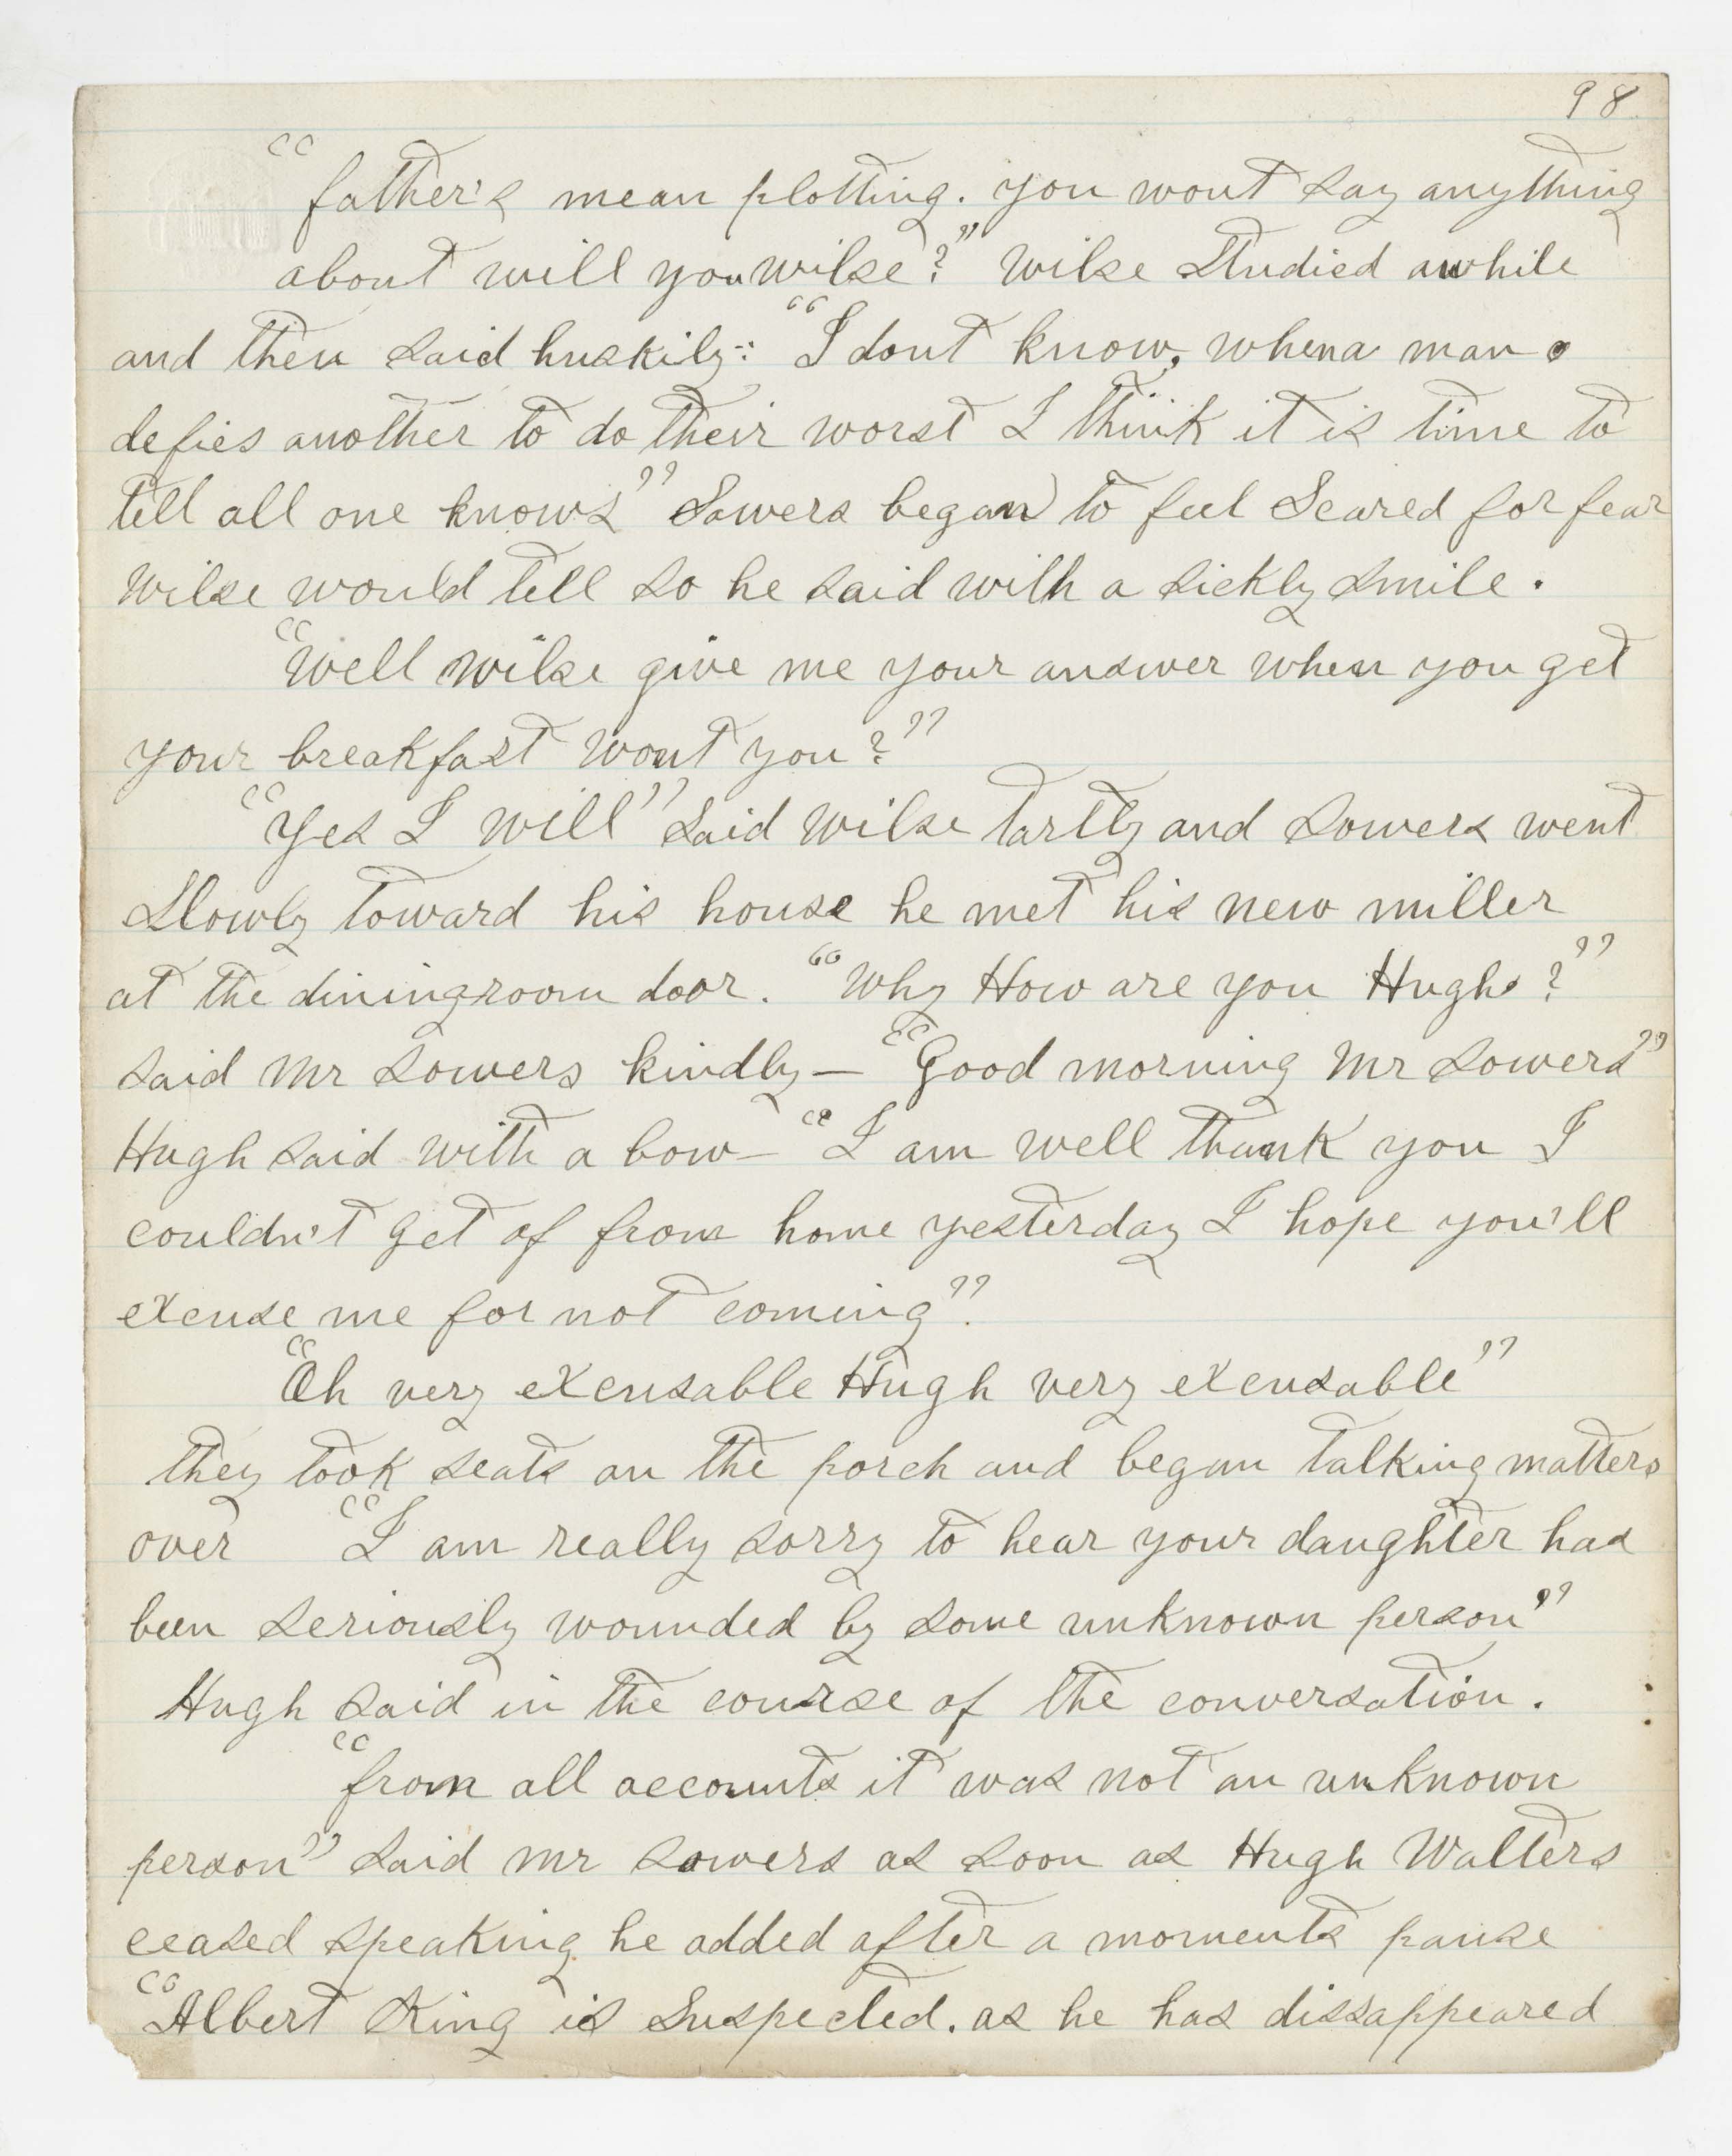 98
"father's mean plotting. you wont say anything
about will you wilse?" wilse studied awhile
and then said huskily: "I dont know, when a man
defies another to do their worst I think it is time to
tell all one knows" Sowers began to feel Scared for fear
wilse would tell so he said with a sickly smile.
"Well wilse give me your answer when you get
your breakfast wont you?"
"Yes I will" said wilse tartly and sowers went
slowly toward his house he met his new miller
at the diningroom door. "Why How are you Hugh?"
said Mr Sowers kindly— "Good morning Mr Sowers"
Hugh said with a bow— "I am well thank you I
couldn't get of from home yesterday I hope you'll
excuse me for not coming".
"Oh very excusable Hugh very excusable"
they took seats on the porch and began talking matters
over "I am really sorry to hear your daughter has
been seriously wounded by some unknown person"
Hugh said in the course of the conversation.
"from all accounts it was not an unknown
person" said Mr Sowers as soon as Hugh Walters
ceased speaking he added after a moments pause
"Albert King is suspected. as he has dissappeared